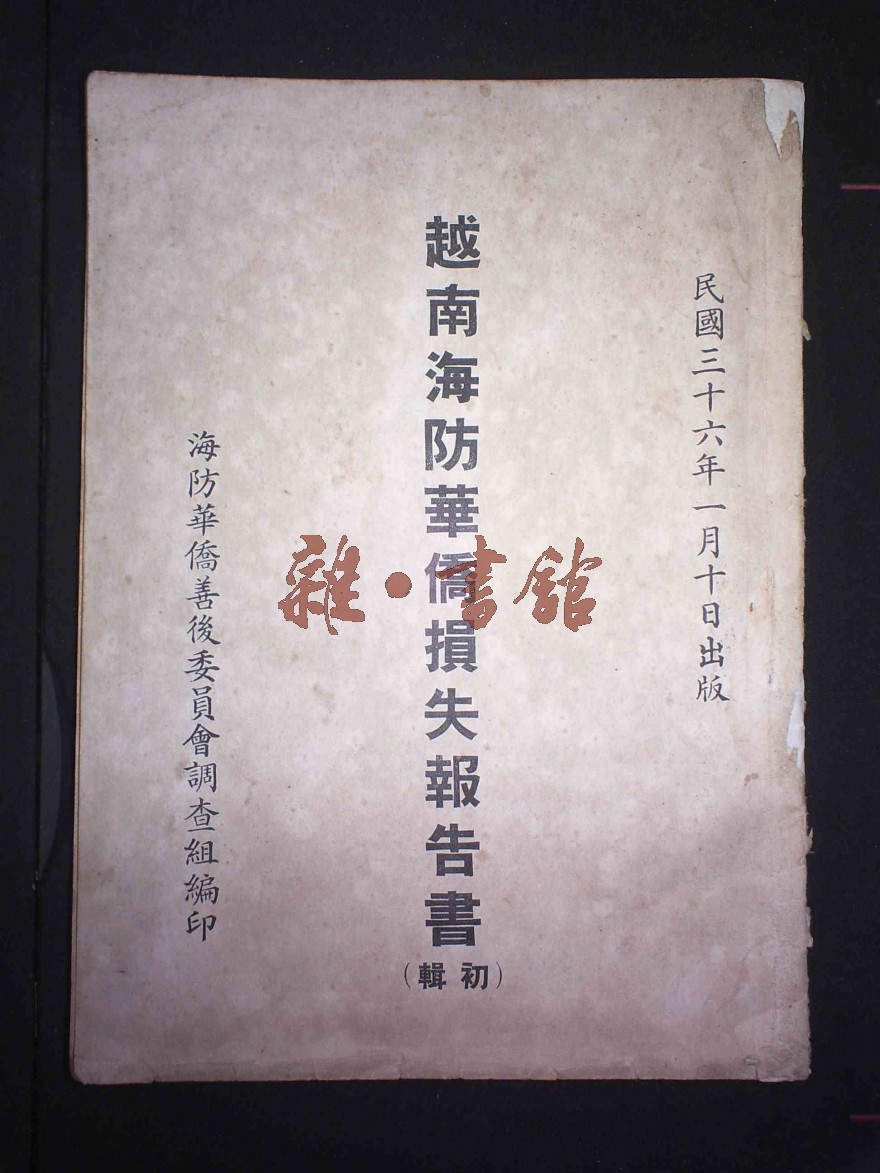 民國三十六年一月十日出版
越南海防華僑損失報告書
（初輯）
海防華僑善後委員會調查組編印
雜・書館